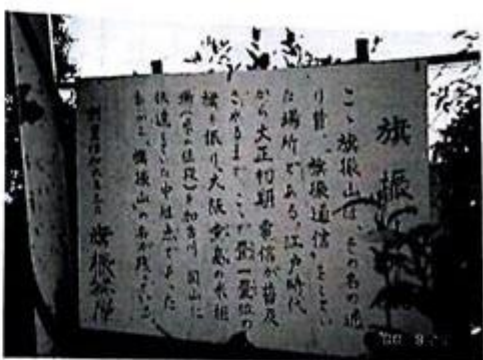 旗振
ここ旗振山は、その名の通
り昔、"旗振通信"をしてい
た場所である。江戸時代
から大正初期 電信が普及
されるまで、ここが畳一畳位の
旗を振り、大阪 の米相
場(米の値段)を加古川 岡山に
伝達した中継点であった
旗振山の名が残っている
旗振茶屋